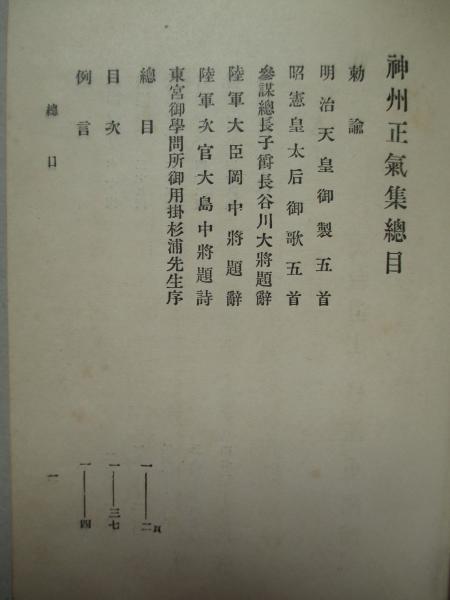 神州正氣集總目
勅諭
明治天皇御製五首
昭憲皇太后御歌五首
參謀總長子爵長谷川大將題辭
陸軍大臣岡中將題辭
陸軍次官大島中將題詩
東宮御學問所御用掛杉浦先生序
總目 一——二頁
目次 一——三七
例言 一——四
總目 一